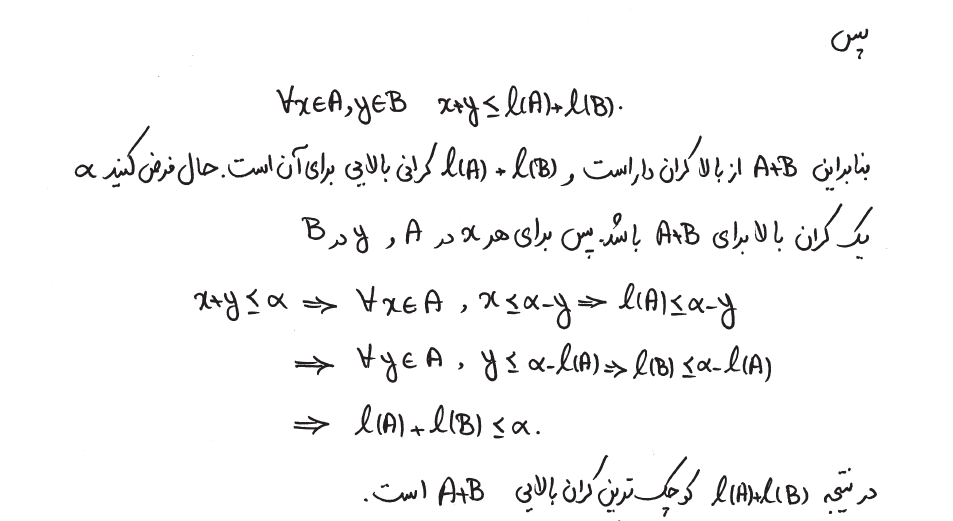 پس
∀x∈A, y∈B   x+y ≤ l(A)+l(B).
بنابراین A+B از بالا کران دار است و l(A)+l(B) کرانی بالایی برای آن است. حال فرض کنید α
یک کران بالا برای A+B باشد. پس برای هر x در A و y در B
x+y ≤ α ⇒ ∀x∈A, x≤α-y ⇒ l(A)≤α-y
⇒ ∀y∈A, y≤α-l(A) ⇒ l(B)≤α-l(A)
⇒ l(A)+l(B)≤α.
در نتیجه l(A)+l(B) کوچک ترین کران بالایی A+B است.